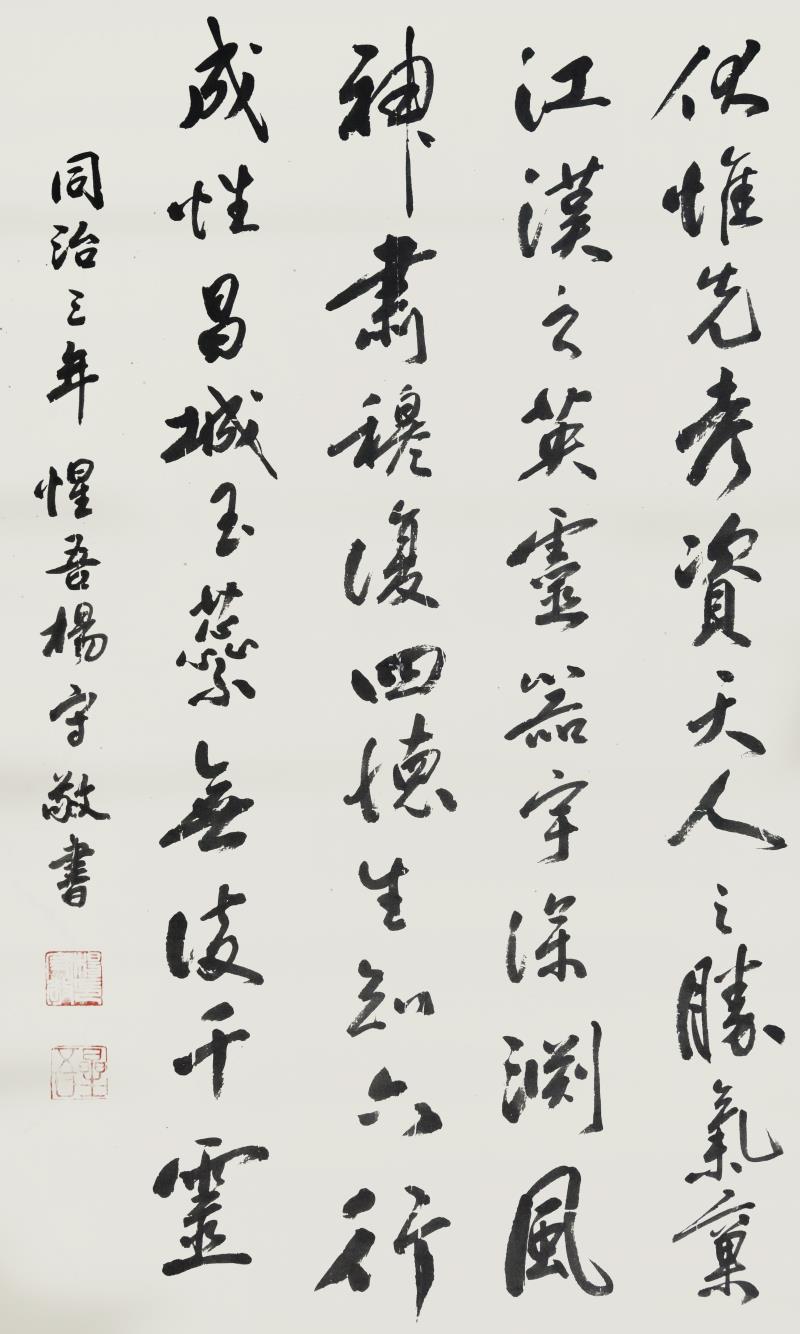 伏惟先考資天人之勝氣稟
江漢之英靈器宇深渊風
神肅穆復四德生知六行
成性昌城玉蘂無復千靈
同治三年 惺吾楊守敬書